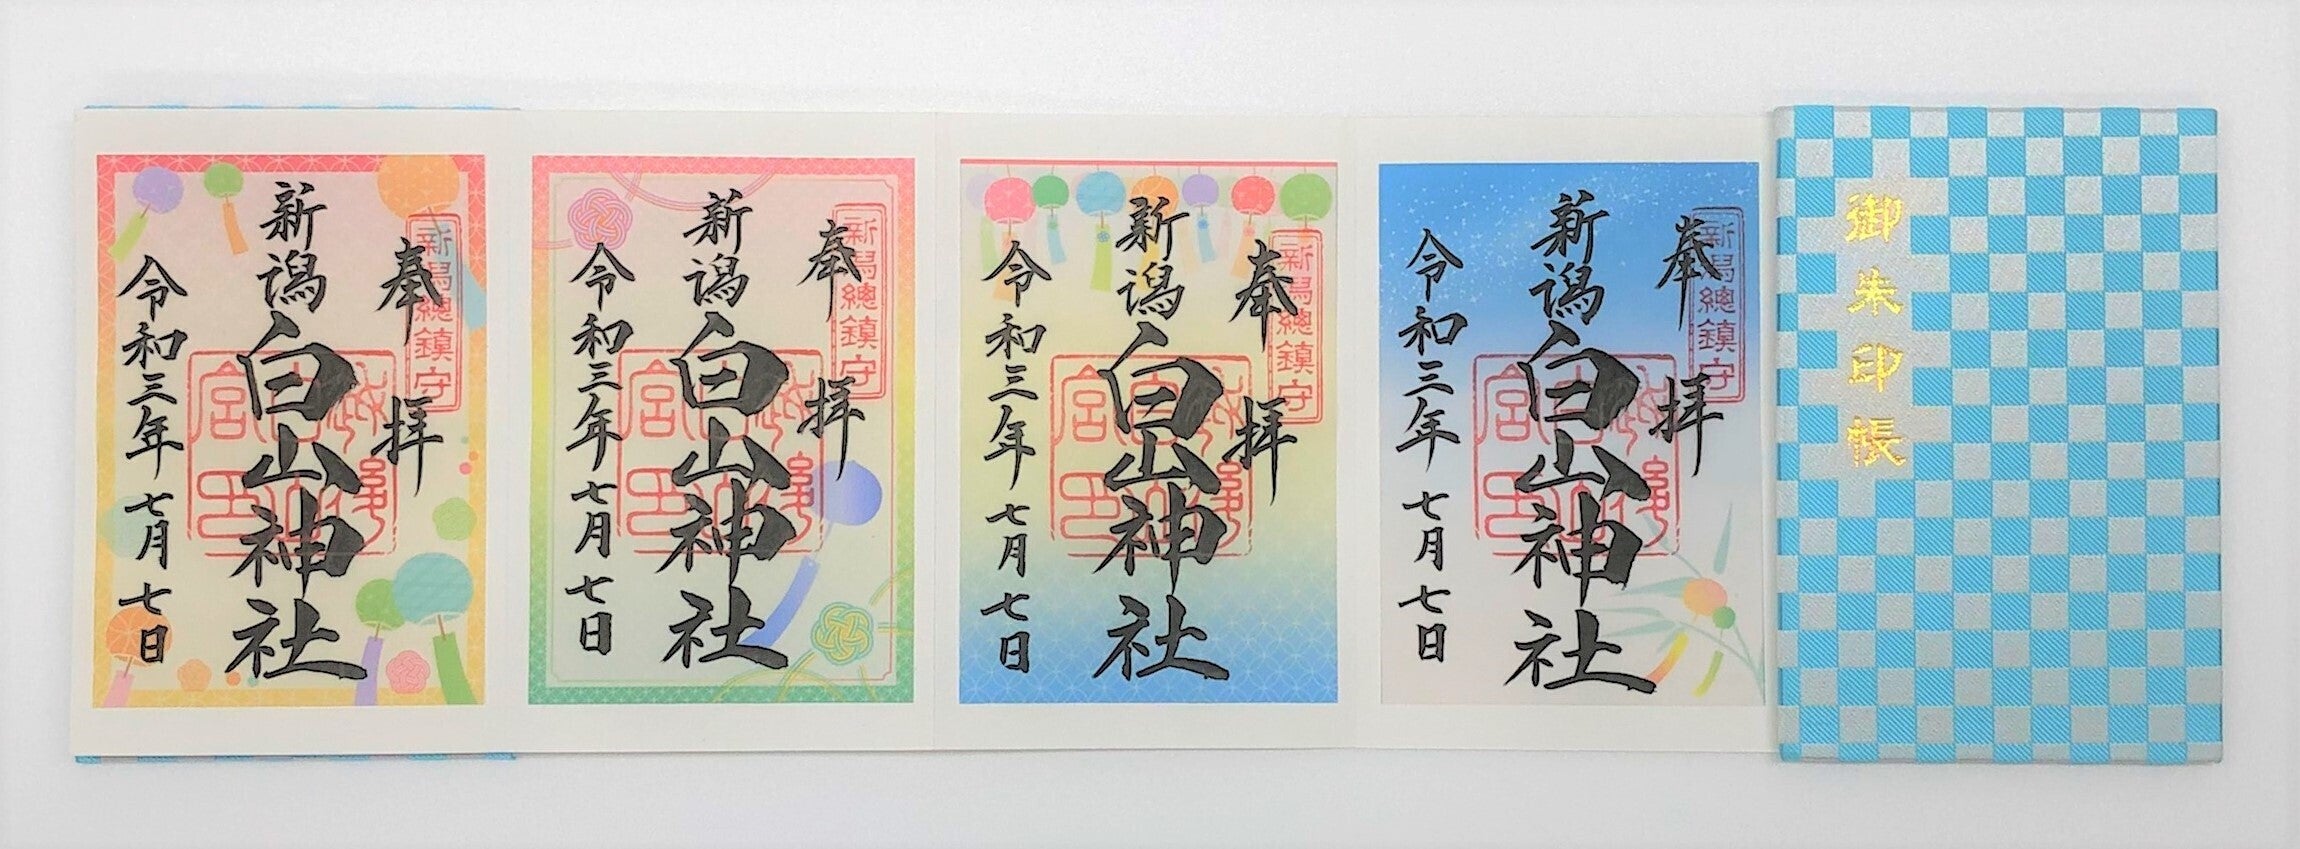 御朱印帳
奉拝
新潟總鎮守
新潟白山神社
令和三年七月七日
奉拝
新潟總鎮守
新潟白山神社
令和三年七月七日
奉拝
新潟總鎮守
新潟白山神社
令和三年七月七日
奉拝
新潟總鎮守
新潟白山神社
令和三年七月七日